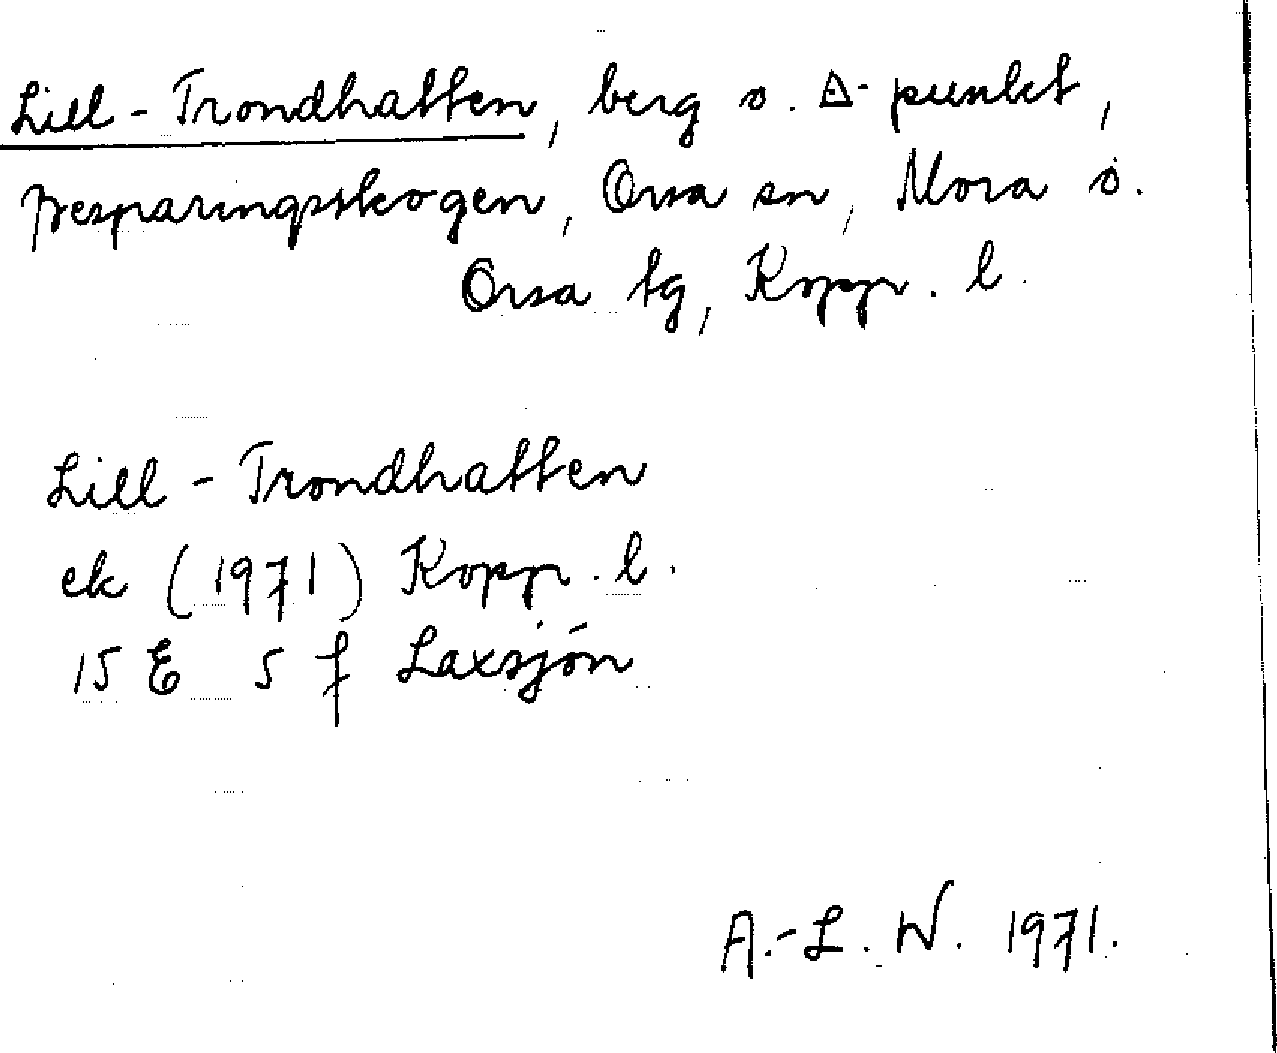 Lill-Trondhatten, berg o. Δ-punkt,
Besparingsskogen, Orsa sn, Mora o.
Orsa tg, Kopp. l.
Lill-Trondhatten
ek (1971) Kopp. l.
15 E 5 f Laxsjön
A.-L. W. 1971.